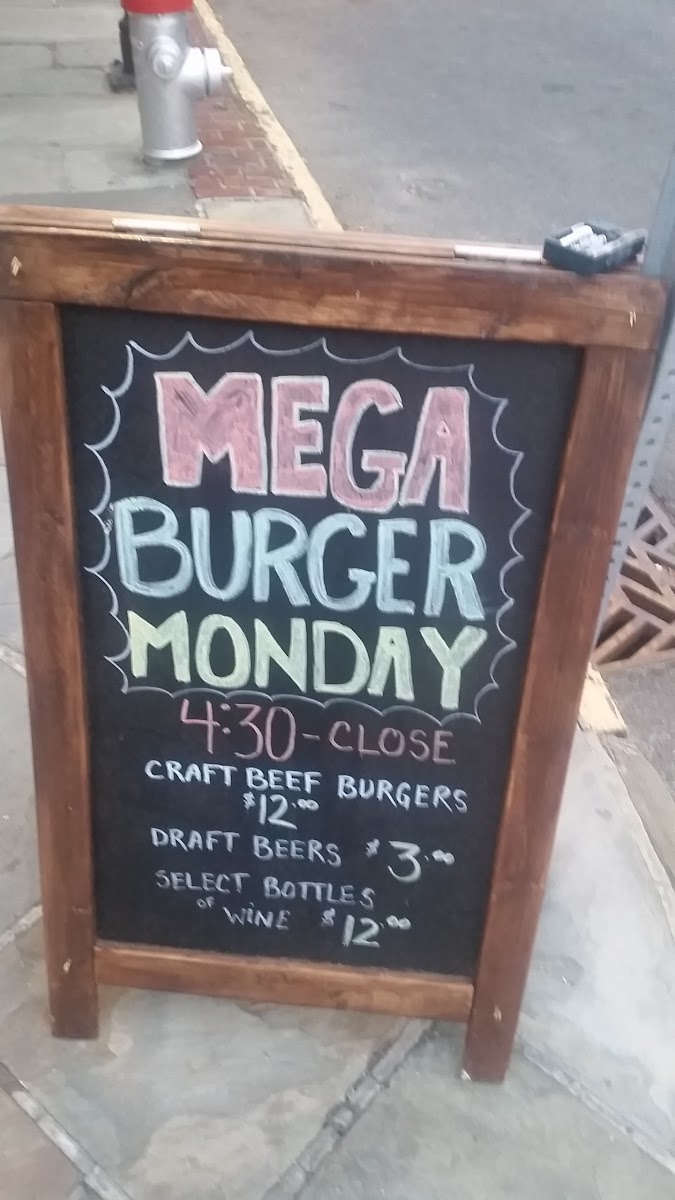 MEGA
BURGER
MONDAY
4:30-CLOSE
CRAFT BEEF BURGERS
$12.00
DRAFT BEERS $3.00
SELECT BOTTLES
OF WINE $12.00